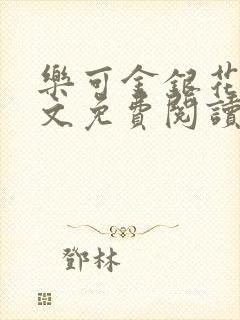 樂可金銀花
文免費閱讀
鄧林